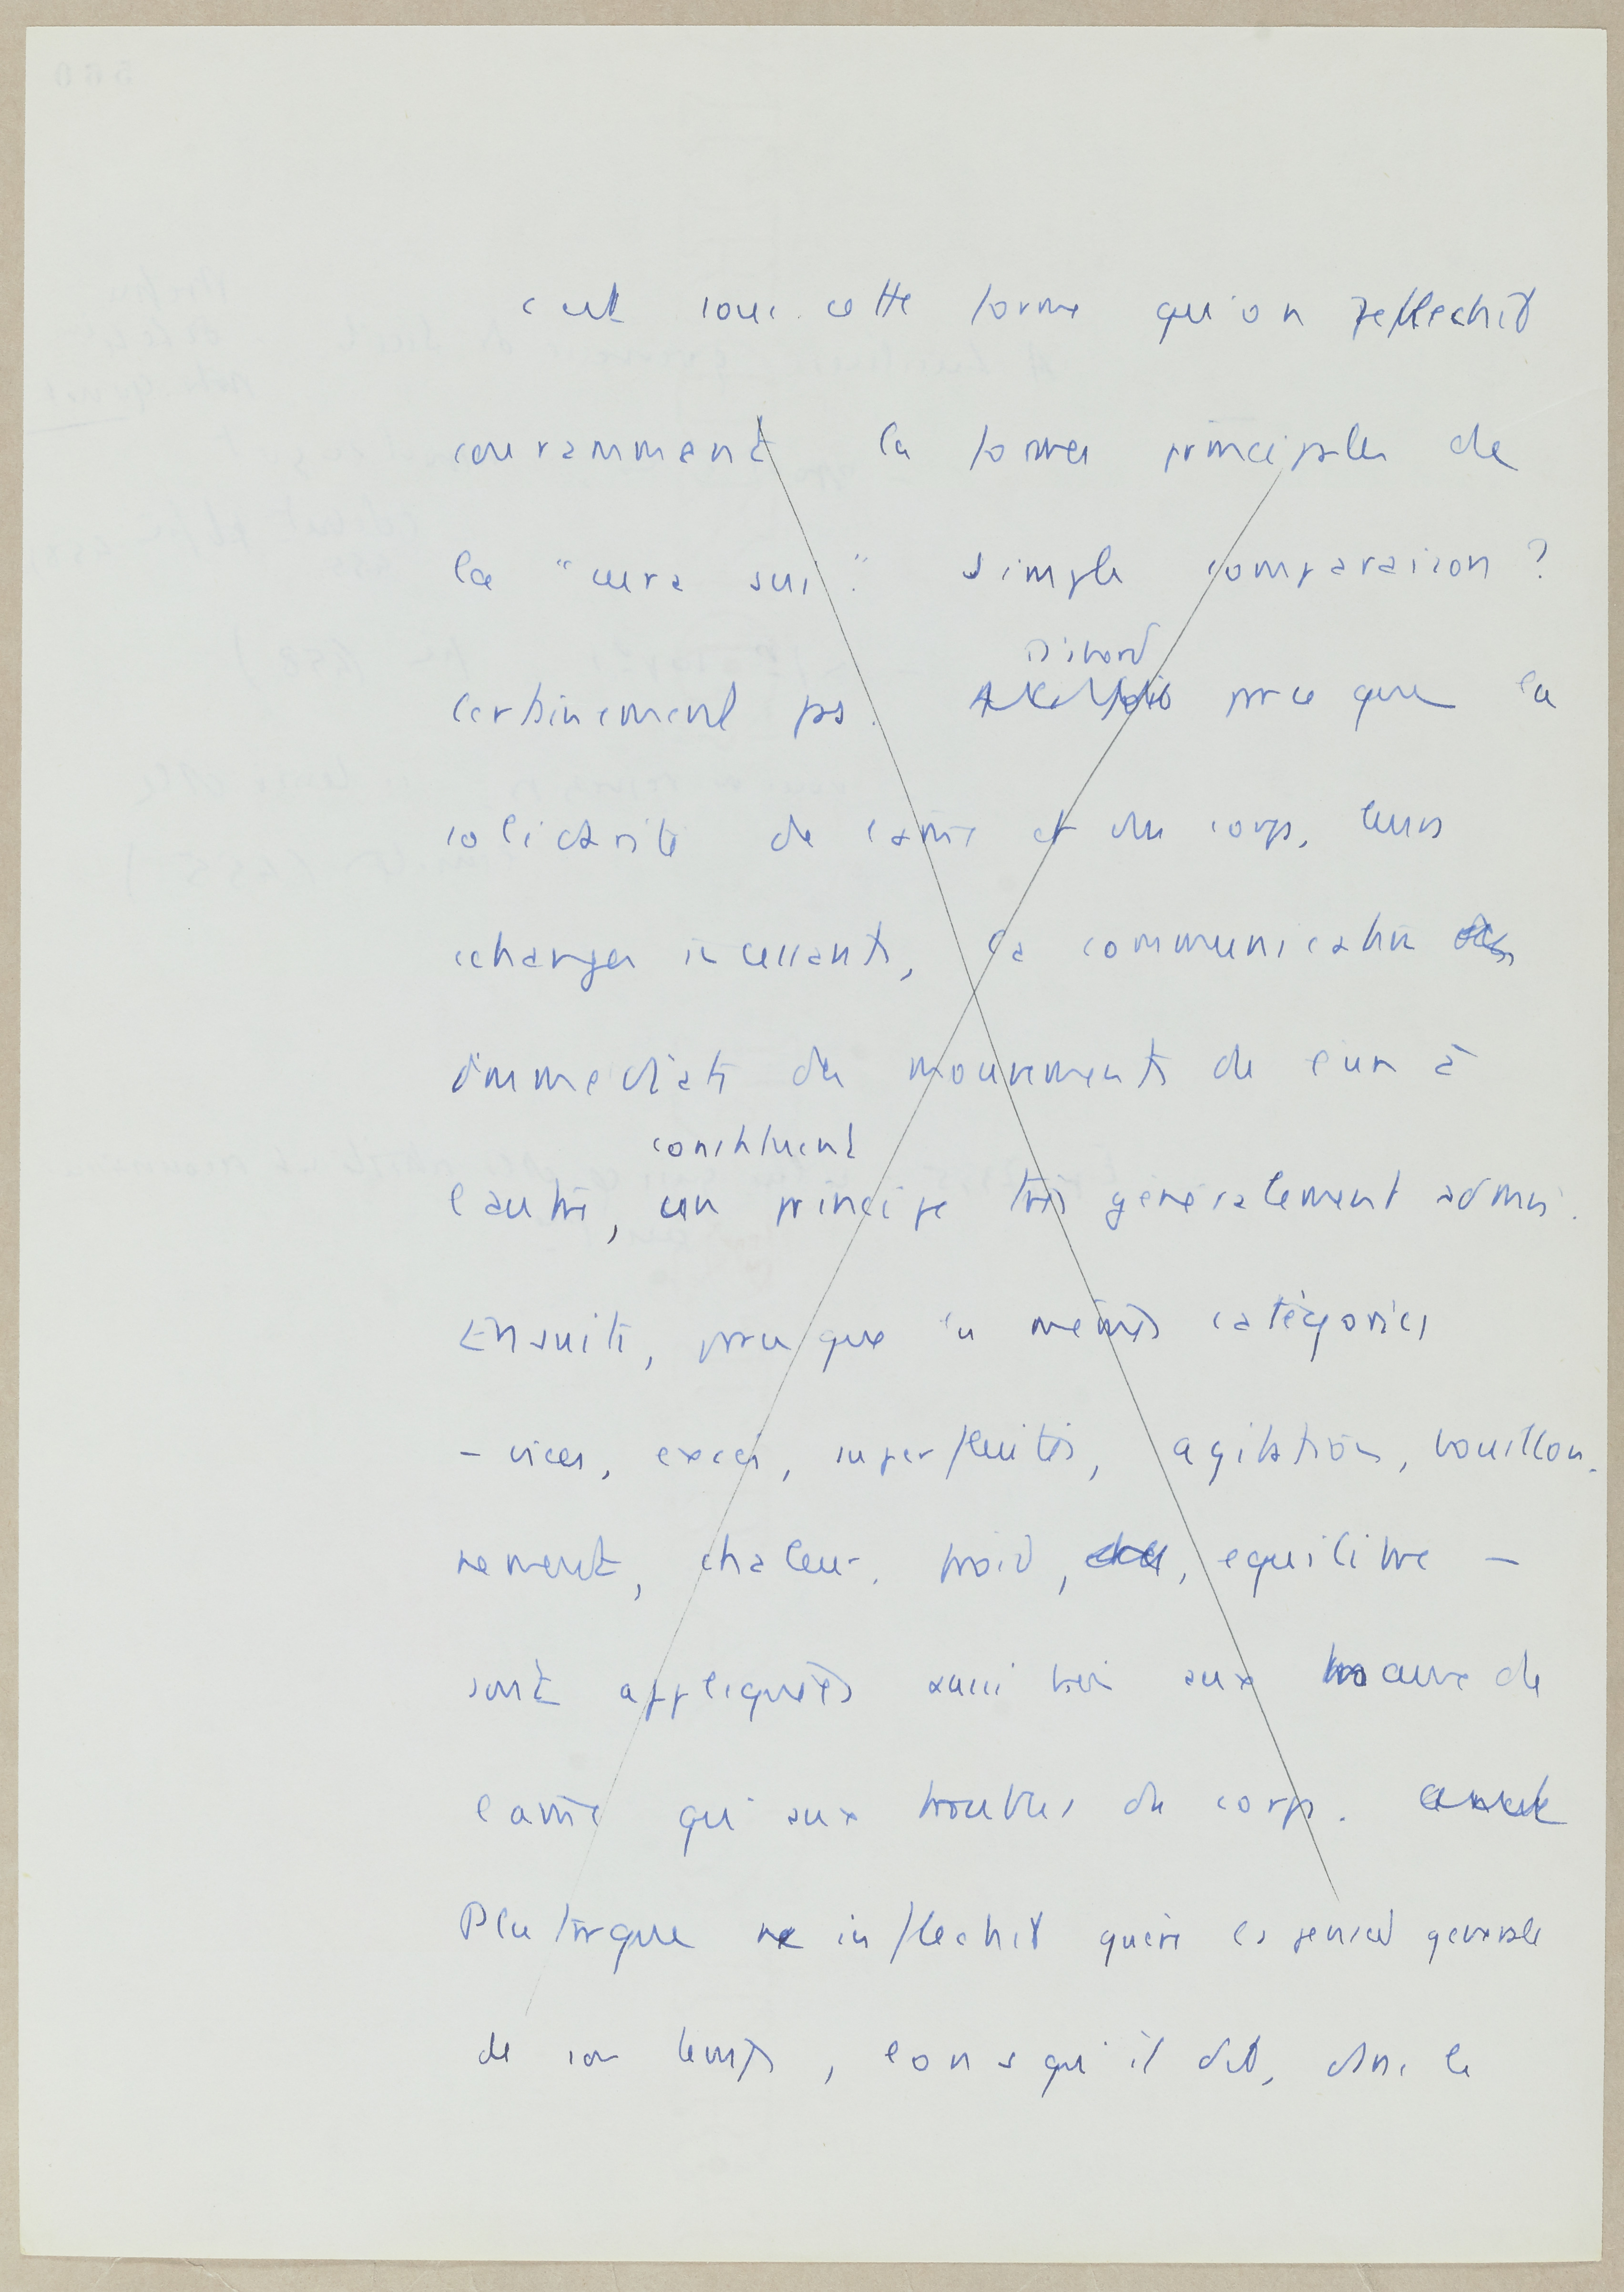 c'est sous cette forme qu'on reflechit
couramment les formes principales de
la "cura sui". Simple comparaison ?
certainement pas. D'abord parce que la
solidarité de l'ame et du corps, leurs
echanges incessants, la communication
immediate des mouvements de l'un à
l'autre, constituent un principe très generalement admis.
Ensuite, parce que les mêmes catégories
- vices, excès, superfluités, agitation, bouillon-
nement, chaleur, froid, equilibre -
sont appliquées aussi bien aux maux de
l'ame qu'aux troubles du corps.
Plutarque ne inflechit guère la pensée generale
de son temps, lorsqu'il dit, dans le